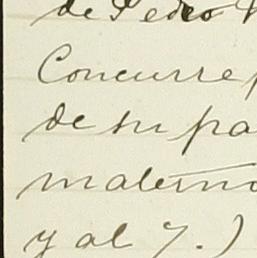 de Pedro
Concurre
de su pa
materno
y al 7.)